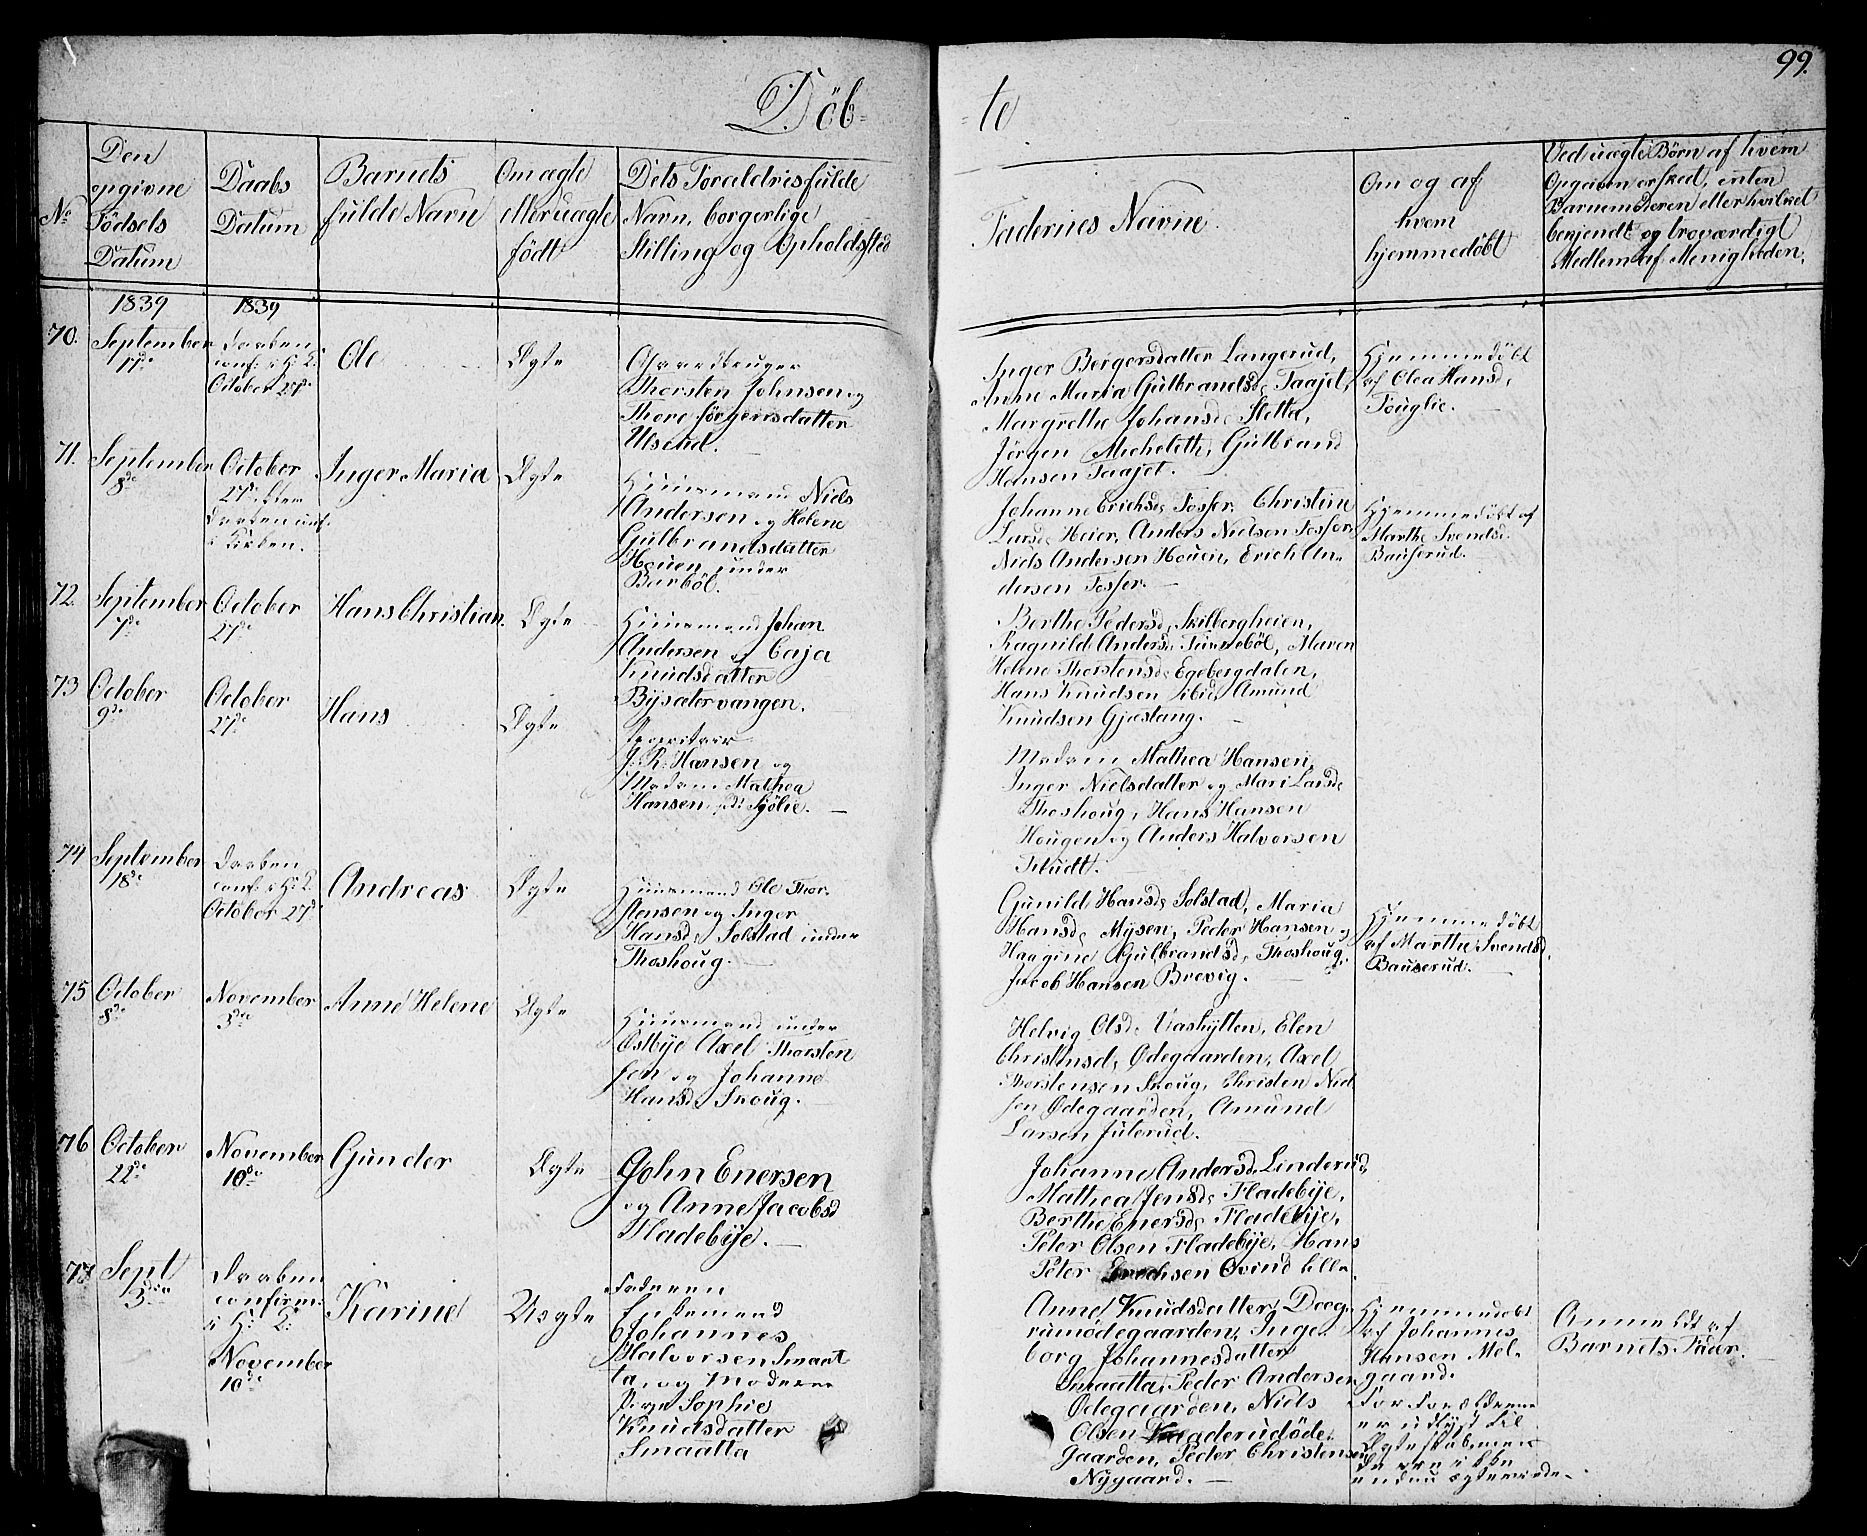 99.
Döb- te
No
Den opgivne Födsels Datum
Daabs Datum
Barnets fulde Navn
Om ægte eller uægte födt
Dets Foraldres fulde Navn, borgerlige Stilling og Opholdssted
Fadernes Navne.
Om og af hvem hjemmedöbt
Ved uægte Börn af hvem Opgaven er sked, enten Barnemoderen eller hvilket bekjendt og troværdigt Medlem af Menigheden.
1839
1839
70.
September 17de
Daaben conf: i H: K: October 27de
Ole
Ægte
Gaardbruger
Thorsten Johnsen og
Thore Jörgensdatter
Ulserud.
Inger Bergersdatter Langerud,
Anne Maria Gulbrandsd. Taajet,
Margrethe Johansd. Sletta,
Jörgen Micheleth, Gulbrand
Hansen Taajet.
Hjemmedöbt
af Olea Hansd.
Fouglie.
71.
September 8de
October 27de efter Daaben conf. i Kirken.
Inger Maria
Ægte
Huusmand Niels
Andersen og Helene
Gulbrandsdatter
Houen under
Burböl.
Johanne Erichsd. Fosser, Christine
Larsd. Heier, Anders Nielsen Fosser,
Niels Andersen Houen, Erich An-
dersen Fosser.
Hjemmedöbt af
Marthe Svendsd.
Bauserud.
72.
September 7de
October 27de
Hans Christian.
Ægte
Huusmand Johan
Andersen og Caja
Knudsdatter
Bysætervangen.
Berthe Pedersd. Skilbergheien,
Ragnild Andersd. Tunneböl, Maren
Helene Thorstensd. Egebergdalen,
Hans Knudsen ibid. Amund
Knudsen Gjæstang.
73
October 9de
October 27de
Hans
Ægte
Proprietair
J: R: Hansen og
Madam Mathea
Hansen, Sjölie.
Madam Mathea Hansen,
Inger Nielsdatter og Mari Larsd.
Thoshoug, Hans Hansen
Hougen og Anders Halvorsen
Fludt.
74
September 18de
Daaben conf: i H: K: October 27de
Andreas
Ægte
Huusmand Ole Thor-
stensen og Inger
Hansd. Solstad under
Thoshoug.
Gunild Hansd. Solstad, Maria
Hansd. Mysen, Peder Hansen og
Haagine Gulbrandsd. Thoshoug,
Jacob Hansen Brevig.
Hjemmedöbt
af Marthe Svendsd.
Bauserud.
75
October 8de
November 3de
Anne Helene
Ægte
Huusmand under
Östbye Axel Thorsten
sen og Johanne
Hansd. Skoug.
Helvig Olsd. Vashytten, Elen
Christensd. Ödegaarden, Axel
Thorstensen Skoug, Christen Niel
sen Ödegaarden, Amund
Larsen Juterud.
76
October 22de
November 10de
Gunder
Ægte
John Enersen
og Anne Jacobsd
Fladebye.
Johanne Andersd. Linderud,
Mathea Jensd. Fladebye,
Berthe Enersd. Fladebye,
Peter Olsen Fladebye, Hans
Peter Erichsen Övind lille.
77
Sept 3die
Daaben confirm. i H: K: November 10de
Karine
Uægte
Faderen
Enkemand
Johannes
Halvorsen Smaat
ta, og Moderen
Pige Sophie
Knudsdatter
Smaatta
Anne Knudsdatter Dæg-
rumödegaarden, Inge-
borg Johannesdatter
Smaatta, Peder Andersen
Ödegaarden, Niels
Olsen aaderudöde-
gaarden, Peder Christensen
Nygaard.
Hjemmedöbt
af Johannes
Hansen Mel-
gaard.
For Forældrene
er udlyst til
Ægteskab men
de ere ikke
endnu ægteviede.
Anmeldt af
Barnets Fader.